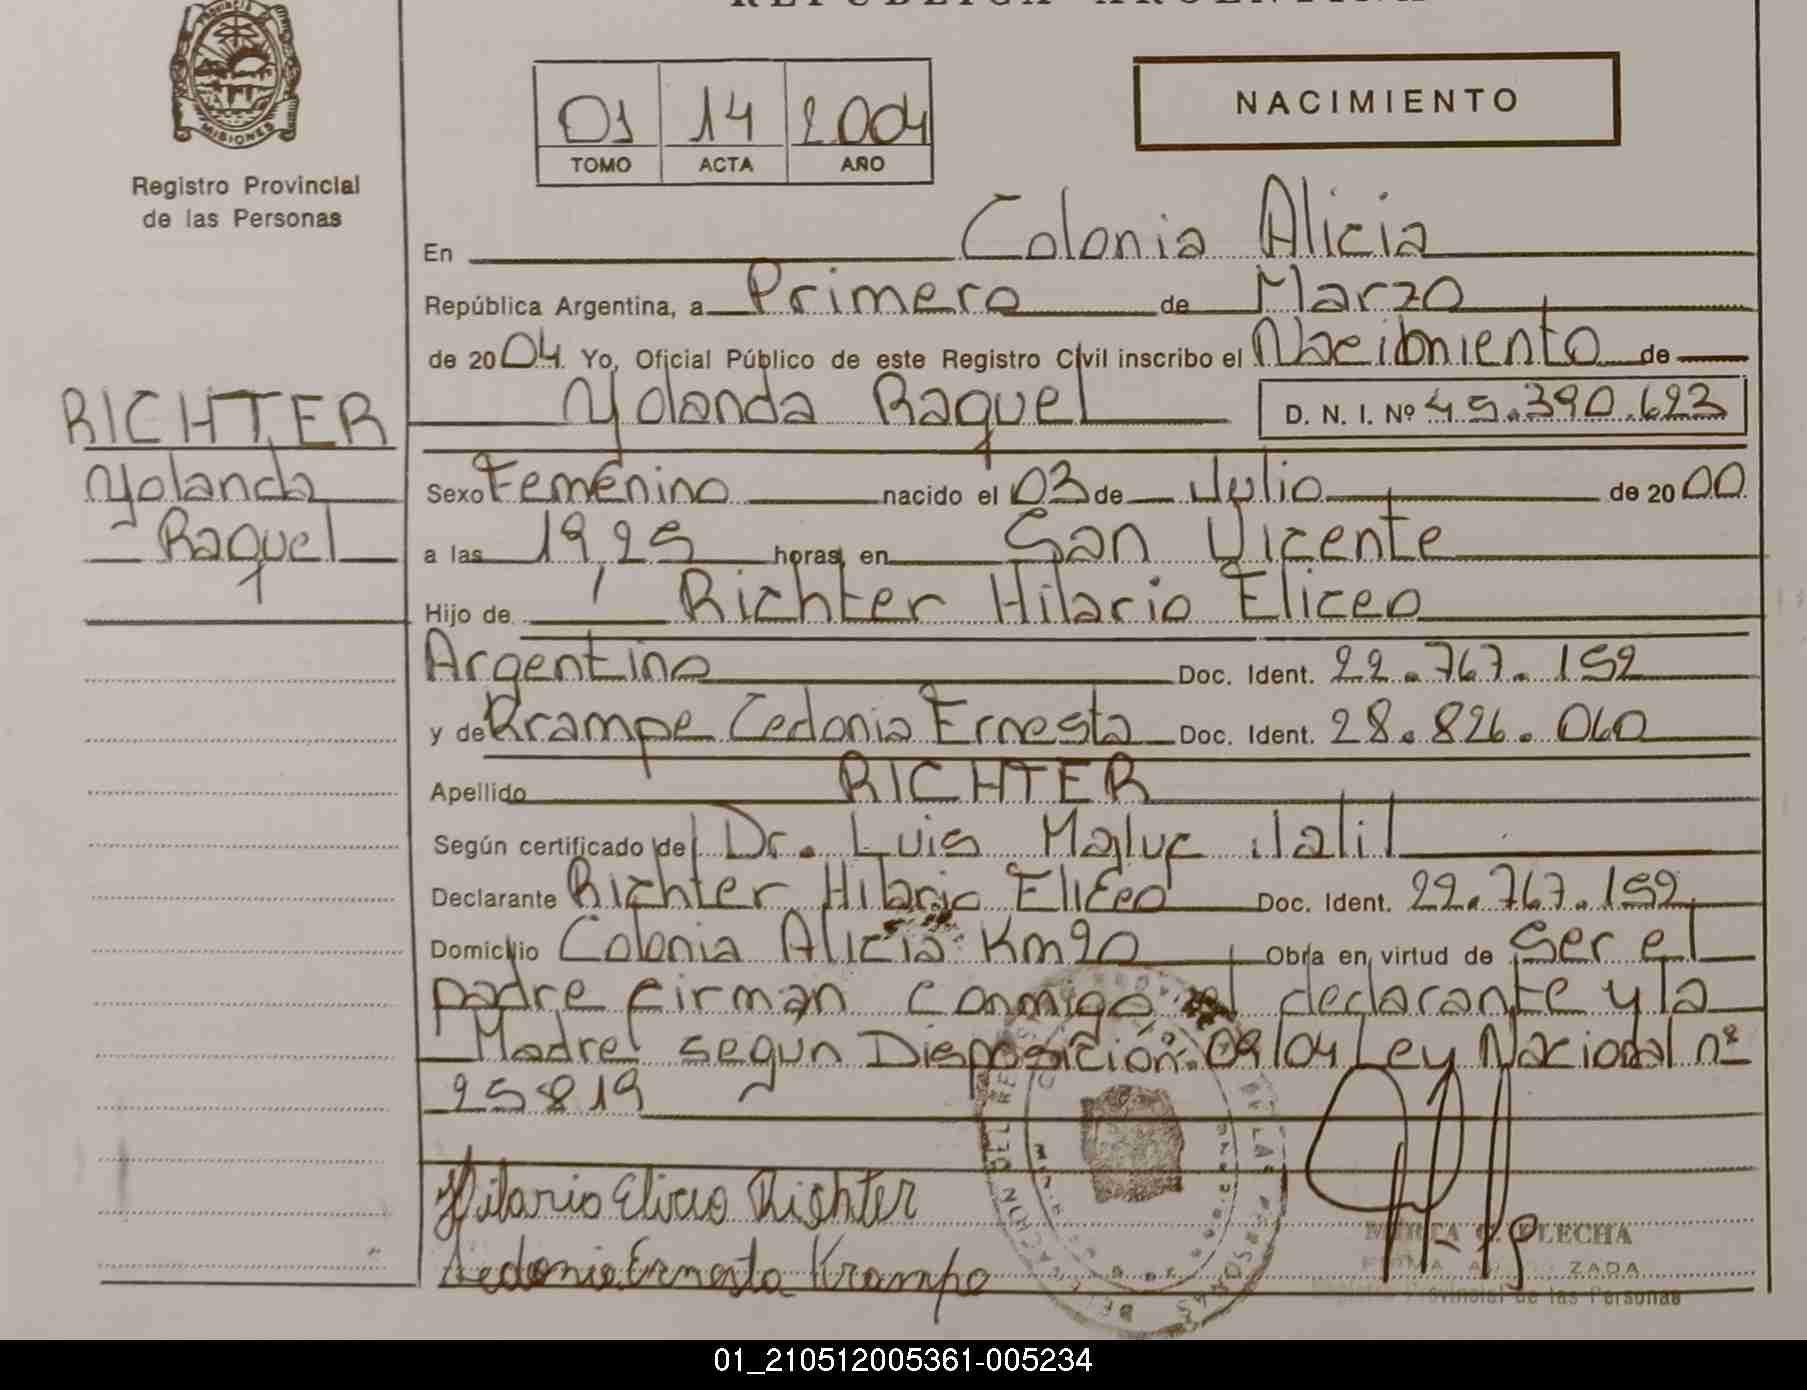 REPUBLICA ARGENTINA
PROVINCIA DE
MISIONES
Registro Provincial
de las Personas
01 14 2004
TOMO ACTA AÑO
NACIMIENTO
En Colonia Alicia
República Argentina, a Primero de Marzo
de 2004. Yo, Oficial Público de este Registro Civil inscribo el Nacimiento de
RICHTER
Yolanda
Raquel
Yolanda Raquel D. N. I. Nº 45.390.623
Sexo Femenino nacido el 03 de Julio de 2000
a las 19,25 horas, en San Vicente
Hijo de Richter Hilario Eliceo
Argentino Doc. Ident. 22.767.152
y de Krampe Cedonia Ernesta Doc. Ident. 28.826.060
Apellido RICHTER
Según certificado de Dr. Luis Maluf Jalil
Declarante Richter Hilario Eliceo Doc. Ident. 22.767.152
Domicilio Colonia Alicia Km 20 Obra en virtud de Ser el
padre firman conmigo el declarante y la
Madre segun Disposición: 09/04 Ley Nacional nº
25819
Hilario Eliceo Richter
Sedonia Ernesta Krampe
MIRTA G. FLECHA
FIRMA AUTORIZADA
Registro Provincial de las Personas
01_210512005361-005234